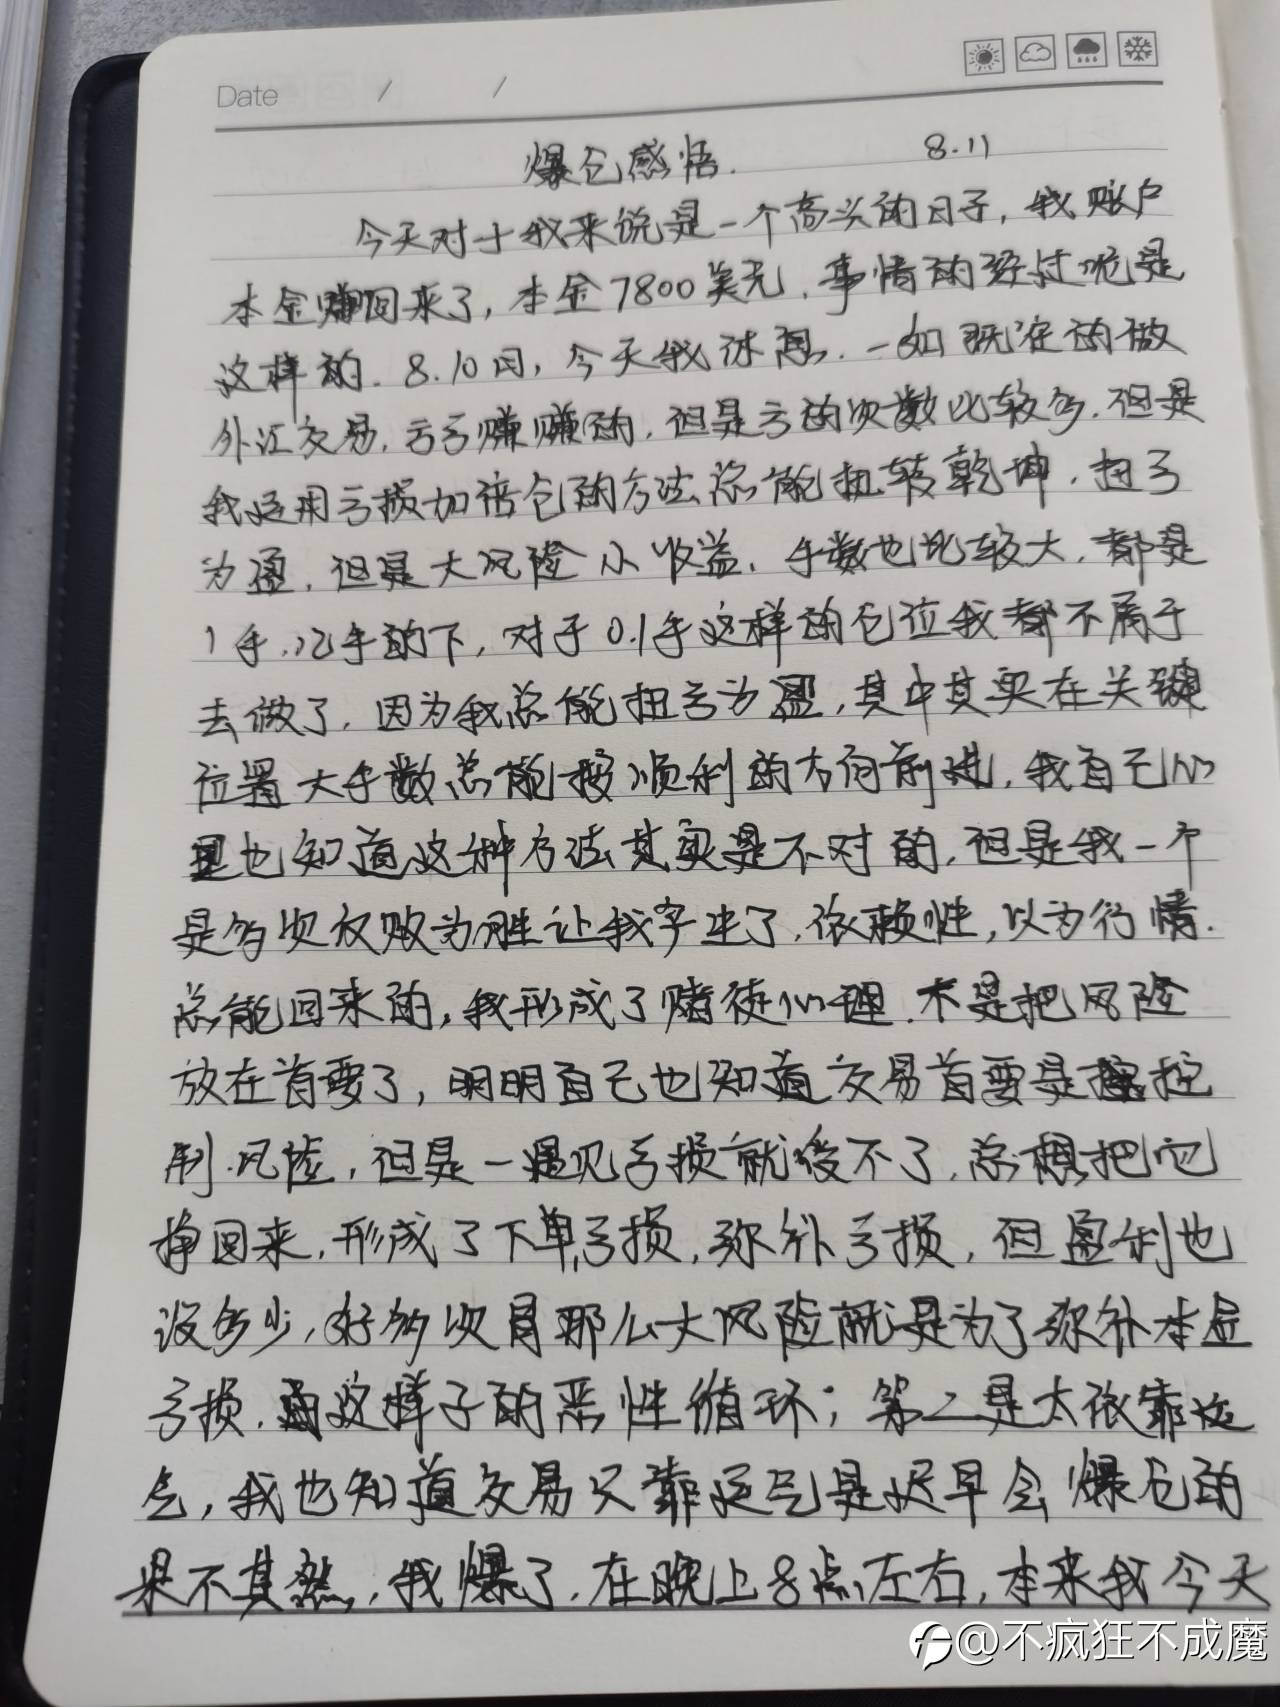 Date / /
爆仓感悟. 8.11
今天对于我来说是一个高兴的日子,我账户
本金赚回来了,本金7800美元,事情的经过呢是
这样的.8.10日,今天我休息.一如既往的做
外汇交易,亏亏赚赚的,但是亏的次数比较多.但是
我运用亏损加倍仓的方法总能扭转乾坤,扭亏
为盈,但是大风险小收益,手数也比较大,都是
1手.几手的下,对于0.1手这样的仓位我都不属于
去做了,因为我总能扭亏为盈,其中其实在关键
位置大手数总能按顺利的方向前进,我自己心
里也知道这种方法其实是不对的,但是我一个
是多次反败为胜让我产生了,依赖性,以为行情.
总能回来的,我形成了赌徒心理.不是把风险
放在首要了,明明自己也知道交易首要是控
制.风险,但是一遇见亏损就受不了,总想把它
挣回来,形成了下单亏损,弥补亏损,但盈利也
没多少,好多次冒那么大风险就是为了弥补本金
亏损.这样子的恶性循环;第二是太依靠运
气,我也知道交易只靠运气是迟早会爆仓的
果不其然,我爆了.在晚上8点左右,本来我今天
@不疯狂不成魔